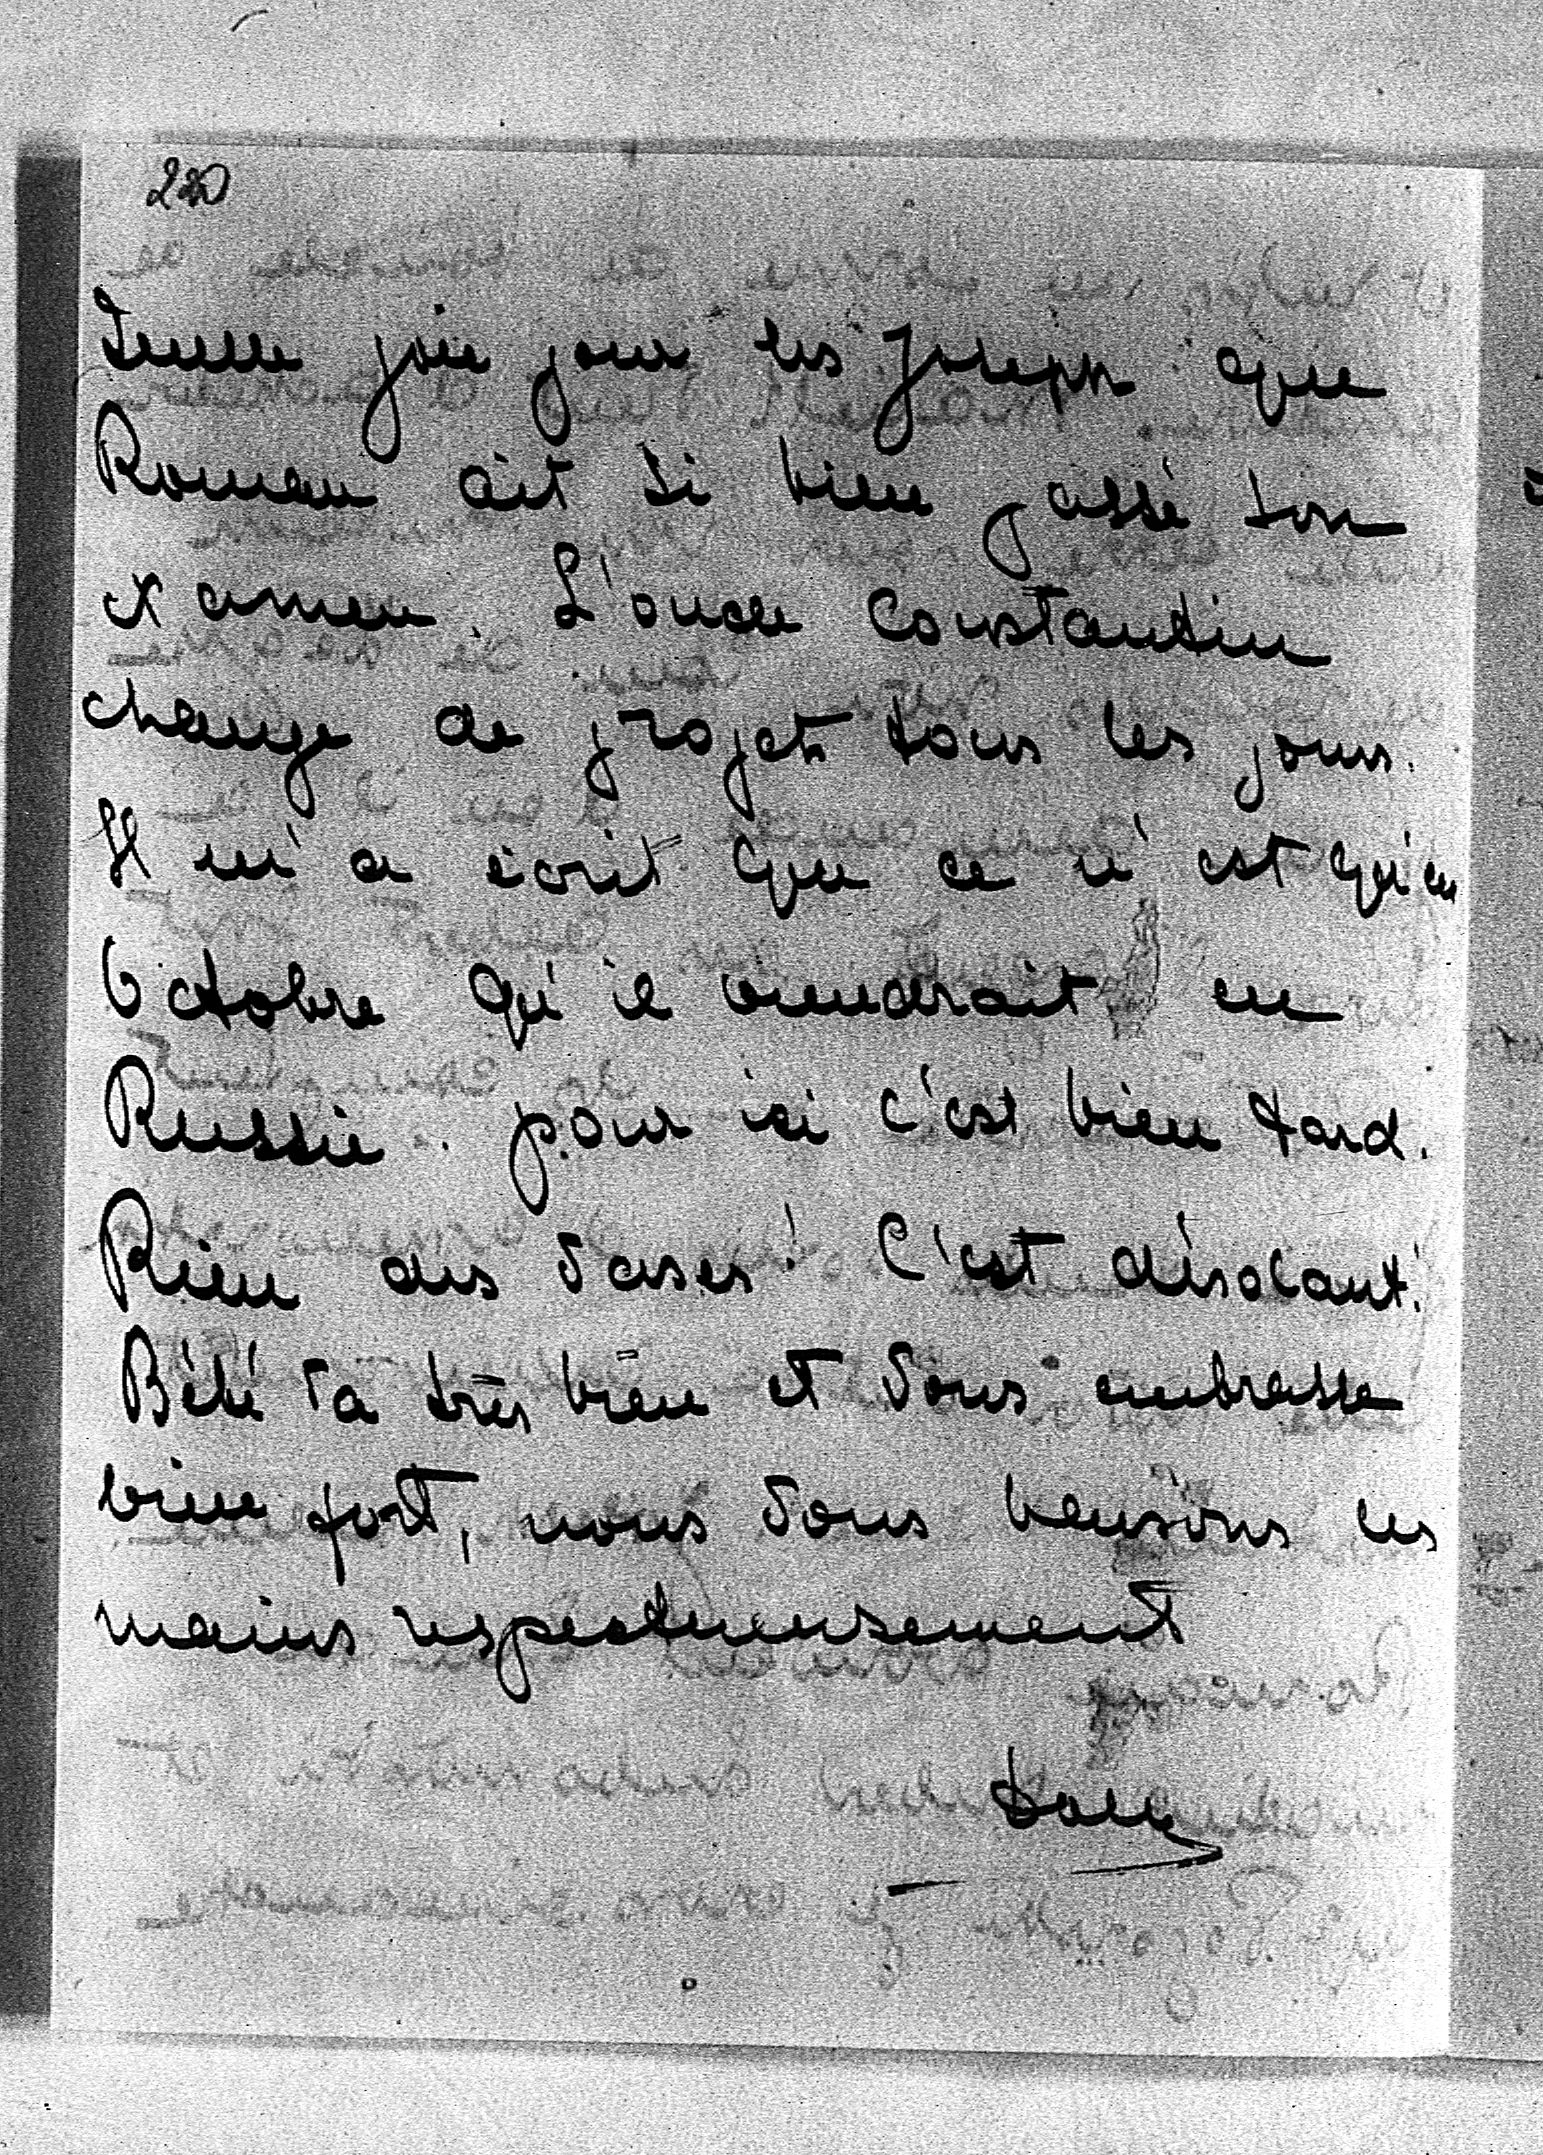 220
joie pour les Joseph que
Roman ait si bien passé son
examen. L'oncle Constantin
change de projets tous les jours.
Il m'a écrit que ce n'est qu'en
Octobre qu'il viendrait en
Russie. pour ici c'est bien tard.
Rien des vases! C'est désolant!
Bébé va très bien et vous embrasse
bien fort, nous vous baisons les
mains respectueusement